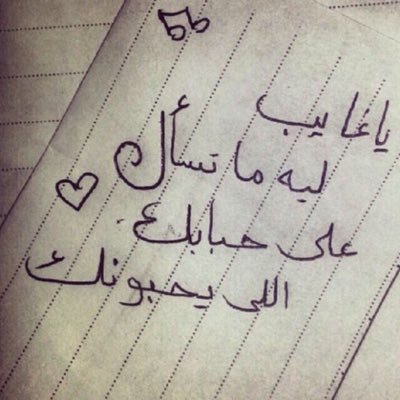 ياغايب
ليه ما تسأل
على حبابك
اللي يحبونك